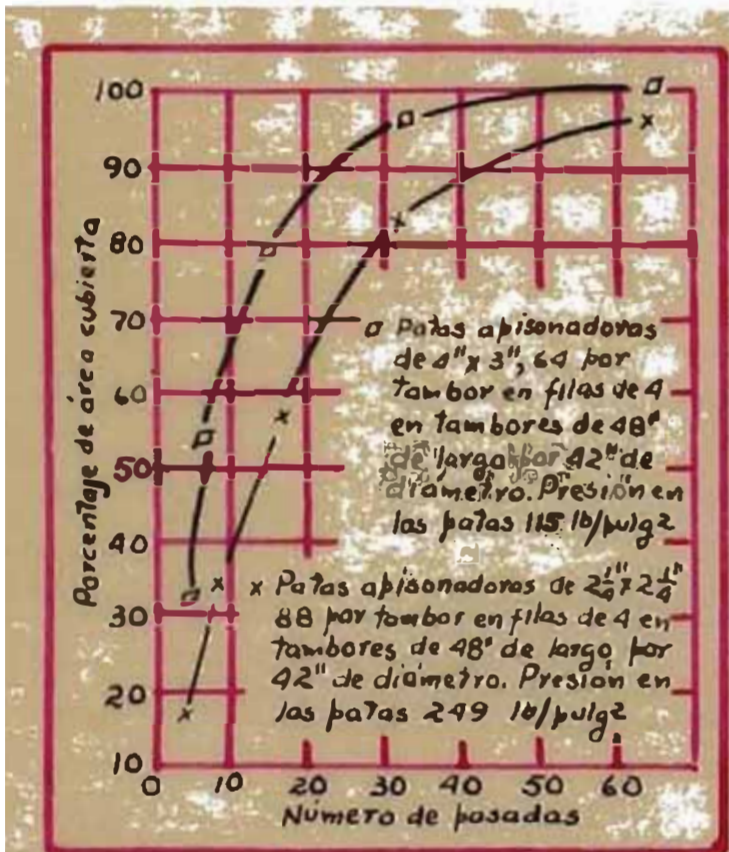 100
90
80
70
60
50
40
30
20
10
Porcentaje de área cubierta
0 10 20 30 40 50 60
Número de pasadas
Patas apisonadoras
de 4"x 3", 64 por
tambor en filas de 4
en tambores de 48"
de largo por 42" de
diametro. Presión en
las patas 115 lb/pulg2
x Patas apisonadoras de 2¼"x 2¼"
88 por tambor en filas de 4 en
tambores de 48" de largo por
42" de diámetro. Presión en
las patas 249 lb/pulg2